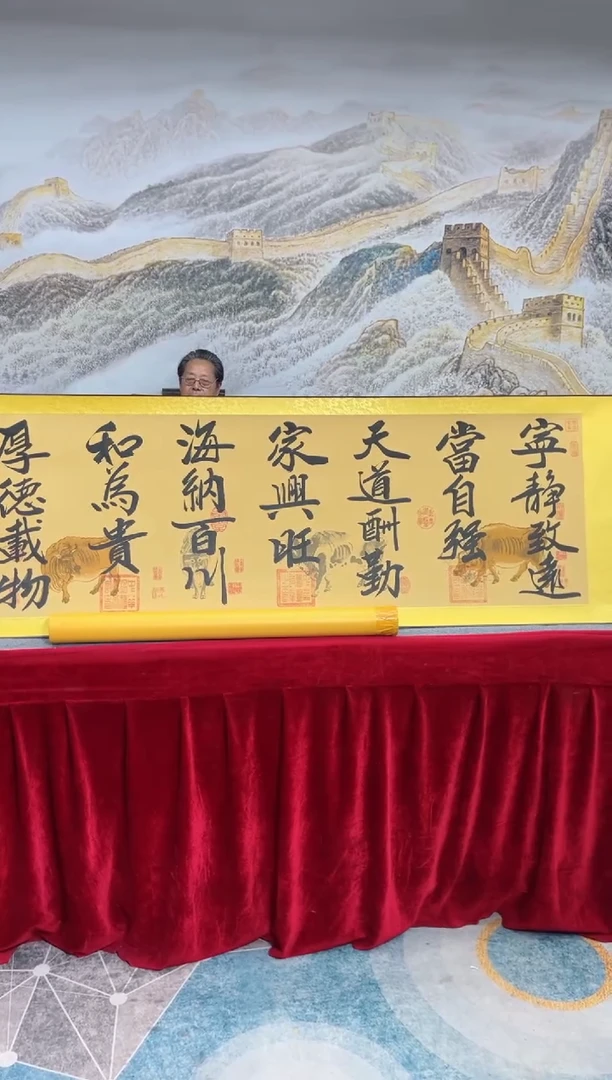 寧靜致遠
當自强
天道酬勤
家興旺
海納百川
和為貴
厚德載物